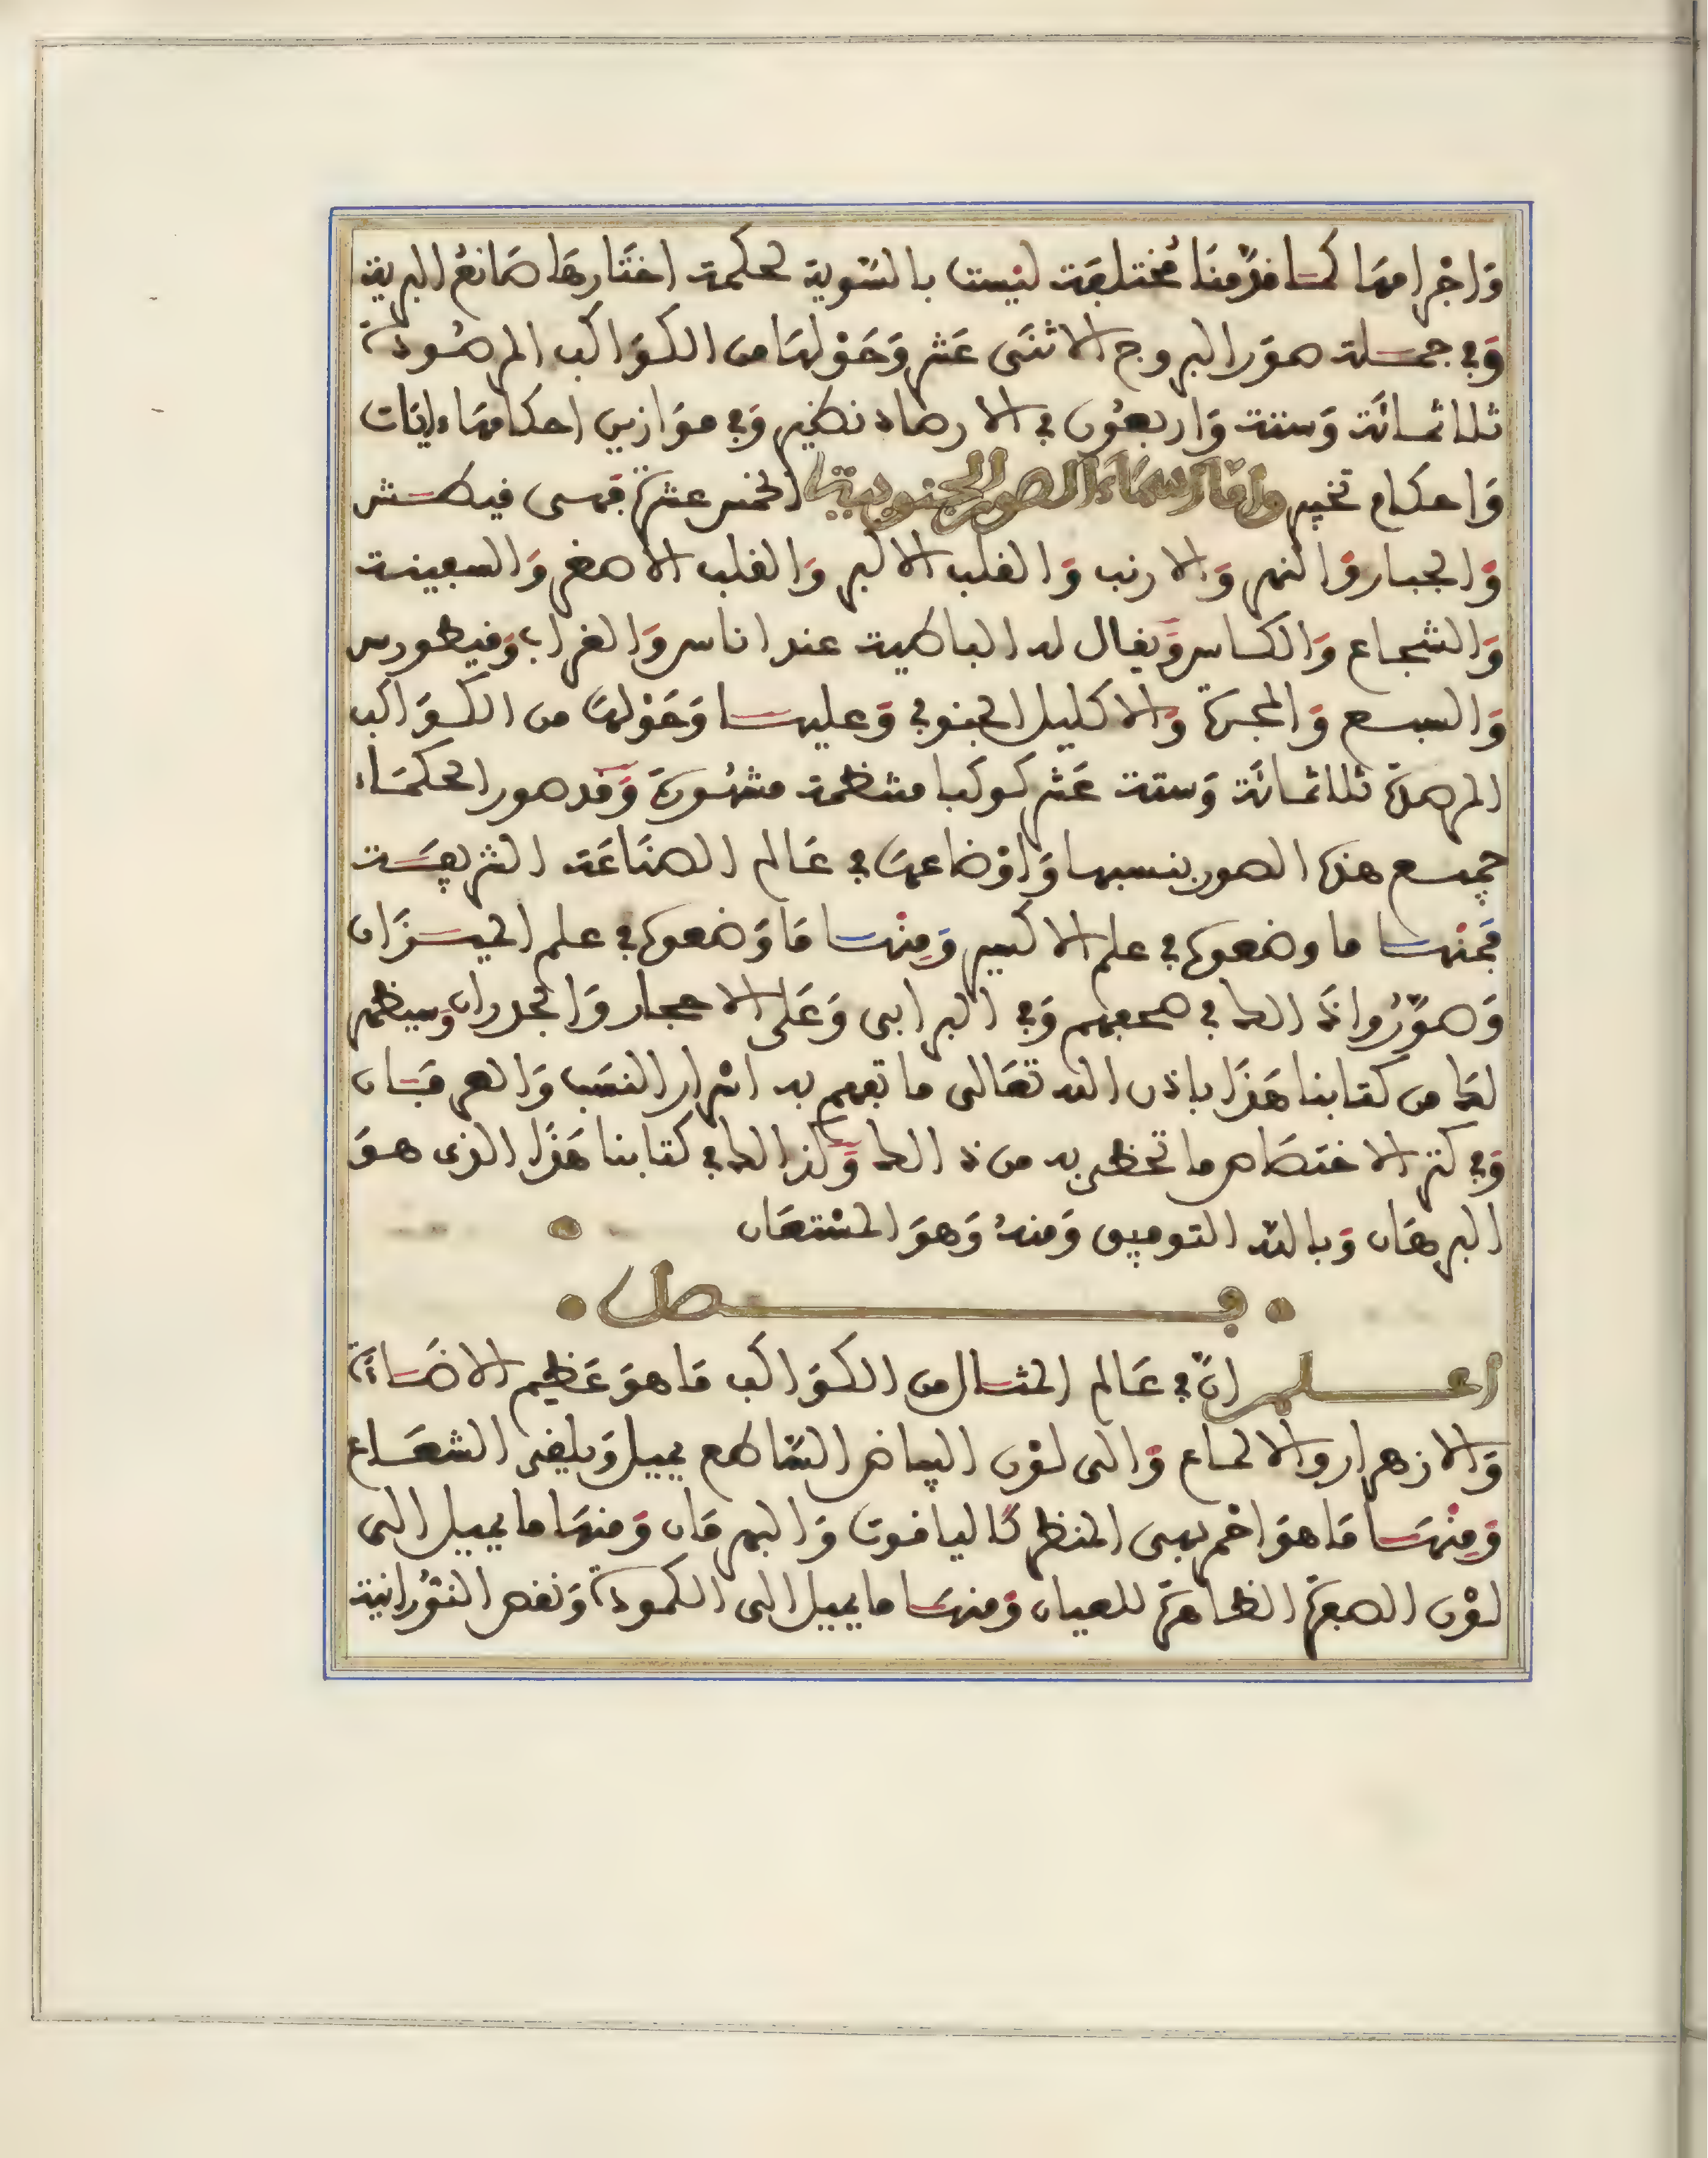 وَاجْرامهَا كمَا قدّمنَا مُختلفَة ليْست بالسّوية لحكمة اختَارهَا صَانعُ البرية
وَفي جملة صوَر البروج الاثنَى عَشر وَحَوْلهَا من الكوَاكب المرصُودة
ثلاثمائَة وَستة وَاربعُون في الارصاد نظير وَفي موَازين احكامهَا ءايَات
وَاحكام تخير وامّا اسمَاء الصور الجنوبية الخمس عشرة فهى فيطش
وَالجبار وَالنهر وَالارنب وَالكلب الاكبر وَالكلب الاصغر وَالسفينة
وَالشجاع وَالكاس وَيقال له الباطية عند اناس وَالغراب وَفيطورس
وَالسبع وَالمجرة وَالاكليل الجنوبي وَعليها وَحَوْلهَا من الكوَاكب
المرصدة ثلاثمائَة وَستة عَشر كوكبا منتظمة مشهُورة وَقد صور الحكمَاء
جميع هذه الصور بنسبها وَاوْضاعهَا في عَالم الصنَاعَة الشريفَة
فمنْها ما وضعوه في علم الاكسير وَمِنْها مَا وَضعوه في علم الميزَان
وَصوَّرُوا ذَالك في صحفهم وَفي البرابى وَعَلى الاحجار وَالجدران وَسيظهر
لكَ من كتابنا هَذَا باذن الله تعَالى ما تفهم به اسْرار النسَب وَالعرفَان
وَفي كنز الاختصَاص ما تحظى به من ذالك وَكذالك في كتابنا هَذَا الذى هوَ
البرهَان وَبالله التوفيق وَمنهُ وَهوَ المسْتعَان
فصل
اعلم انّ في عَالم المثال من الكوَاكب مَا هوَ عَظيم الاضَاءَة
وَالازهرار والالماع وَالى لوْن البياض السّاطع يميل وَيلقى الشعَاع
وَمِنْهَا مَا هوَ احْمر بهى المنظر كَالياقوت وَالبهرمَان وَمنهَا ما يميل الى
لوْن الصفرة الظاهرَة للعيان وَمنهَا ما يميل الى الكمودة وَنقص النوُرانية